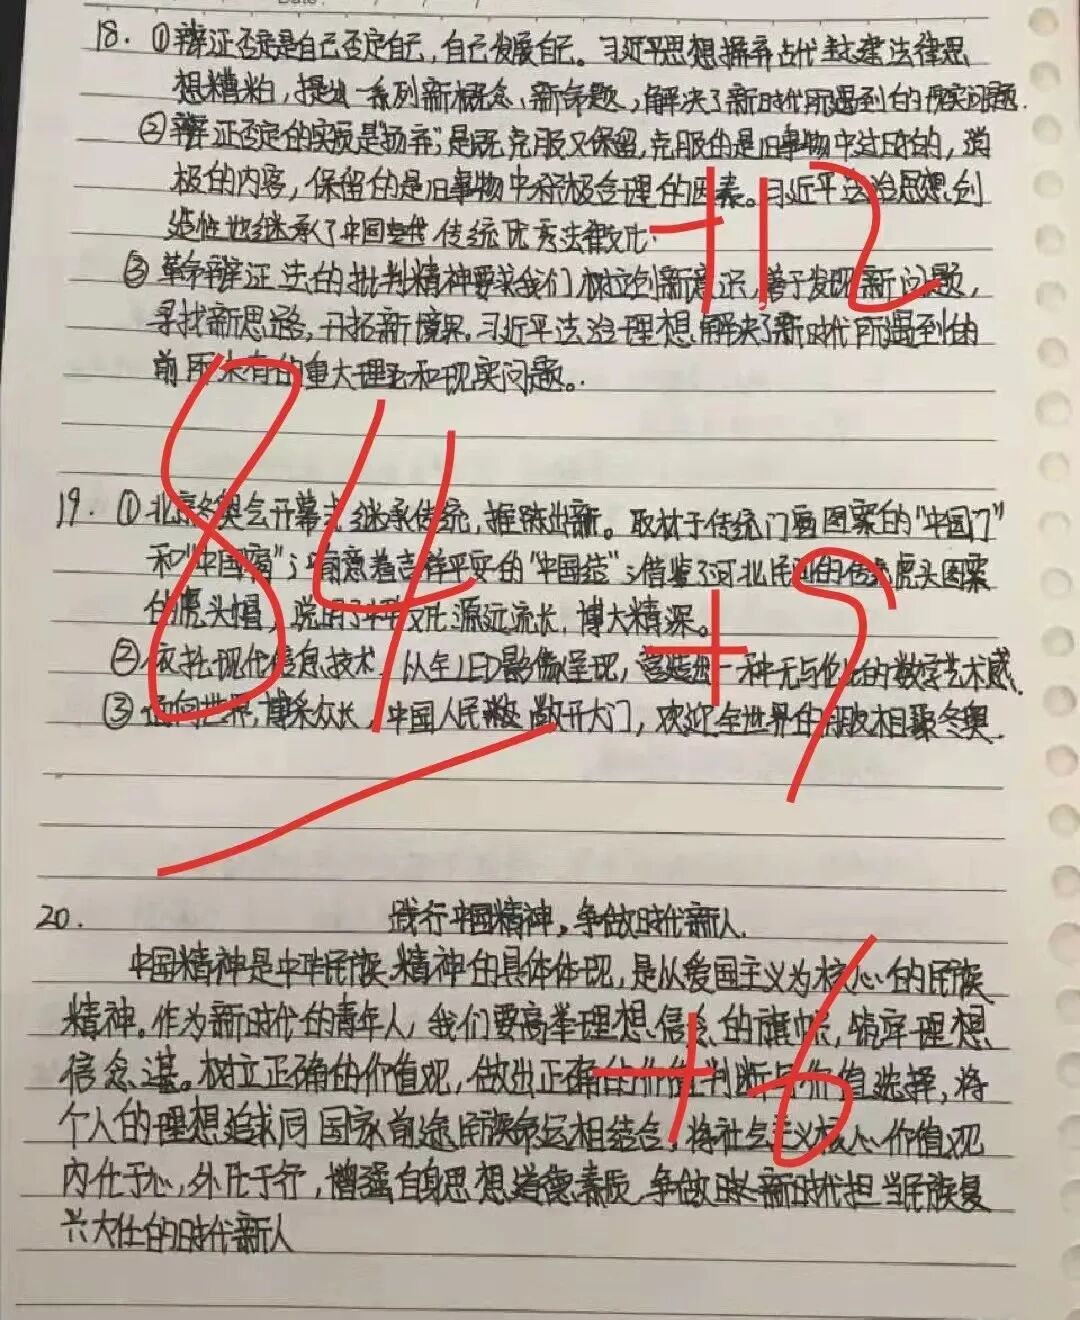 Date:
18. ①辩证否定是自己否定自己，自己发展自己。习近平思想摒弃古代封建法律思
想糟粕，提出一系列新概念、新命题，解决了新时代所遇到的现实问题.
②辩证否定的实质是"扬弃"，是既克服又保留，克服的是旧事物中过时的，消
极的内容，保留的是旧事物中积极合理的因素。习近平法治思想创
造性地继承了中国古代传统优秀法律文化.
+12
③革命辩证法的批判精神要求我们树立创新意识，善于发现新问题，
寻找新思路，开拓新境界。习近平法治理想解决了新时代所遇到的
前所未有的重大理论和现实问题。
84
19. ①北京冬奥会开幕式继承传统，推陈出新。取材于传统门窗图案的"中国门"
和"中国窗"；寓意着吉祥平安的"中国结"；借鉴了河北民间的传统虎头图案
的虎头帽，说明了中华文化源远流长，博大精深。
②依托现代信息技术，从全LED影像呈现，营造出一种无与伦比的数字艺术感.
③面向世界，博采众长，中国人民敞开大门，欢迎全世界的朋友相聚冬奥.
20. 践行中国精神，争做时代新人.
中国精神是中华民族精神的具体体现，是从爱国主义为核心的民族
精神。作为新时代的青年人，我们要高举理想信念的旗帜，筑牢理想
信念谌。树立正确的价值观，做出正确的价值判断与价值选择，将
+6
个人的理想追求同国家前途民族命运相结合，将社会主义核心价值观
内化于心，外化于行，增强自身思想道德素质，争做新时代担当民族复
兴大任的时代新人